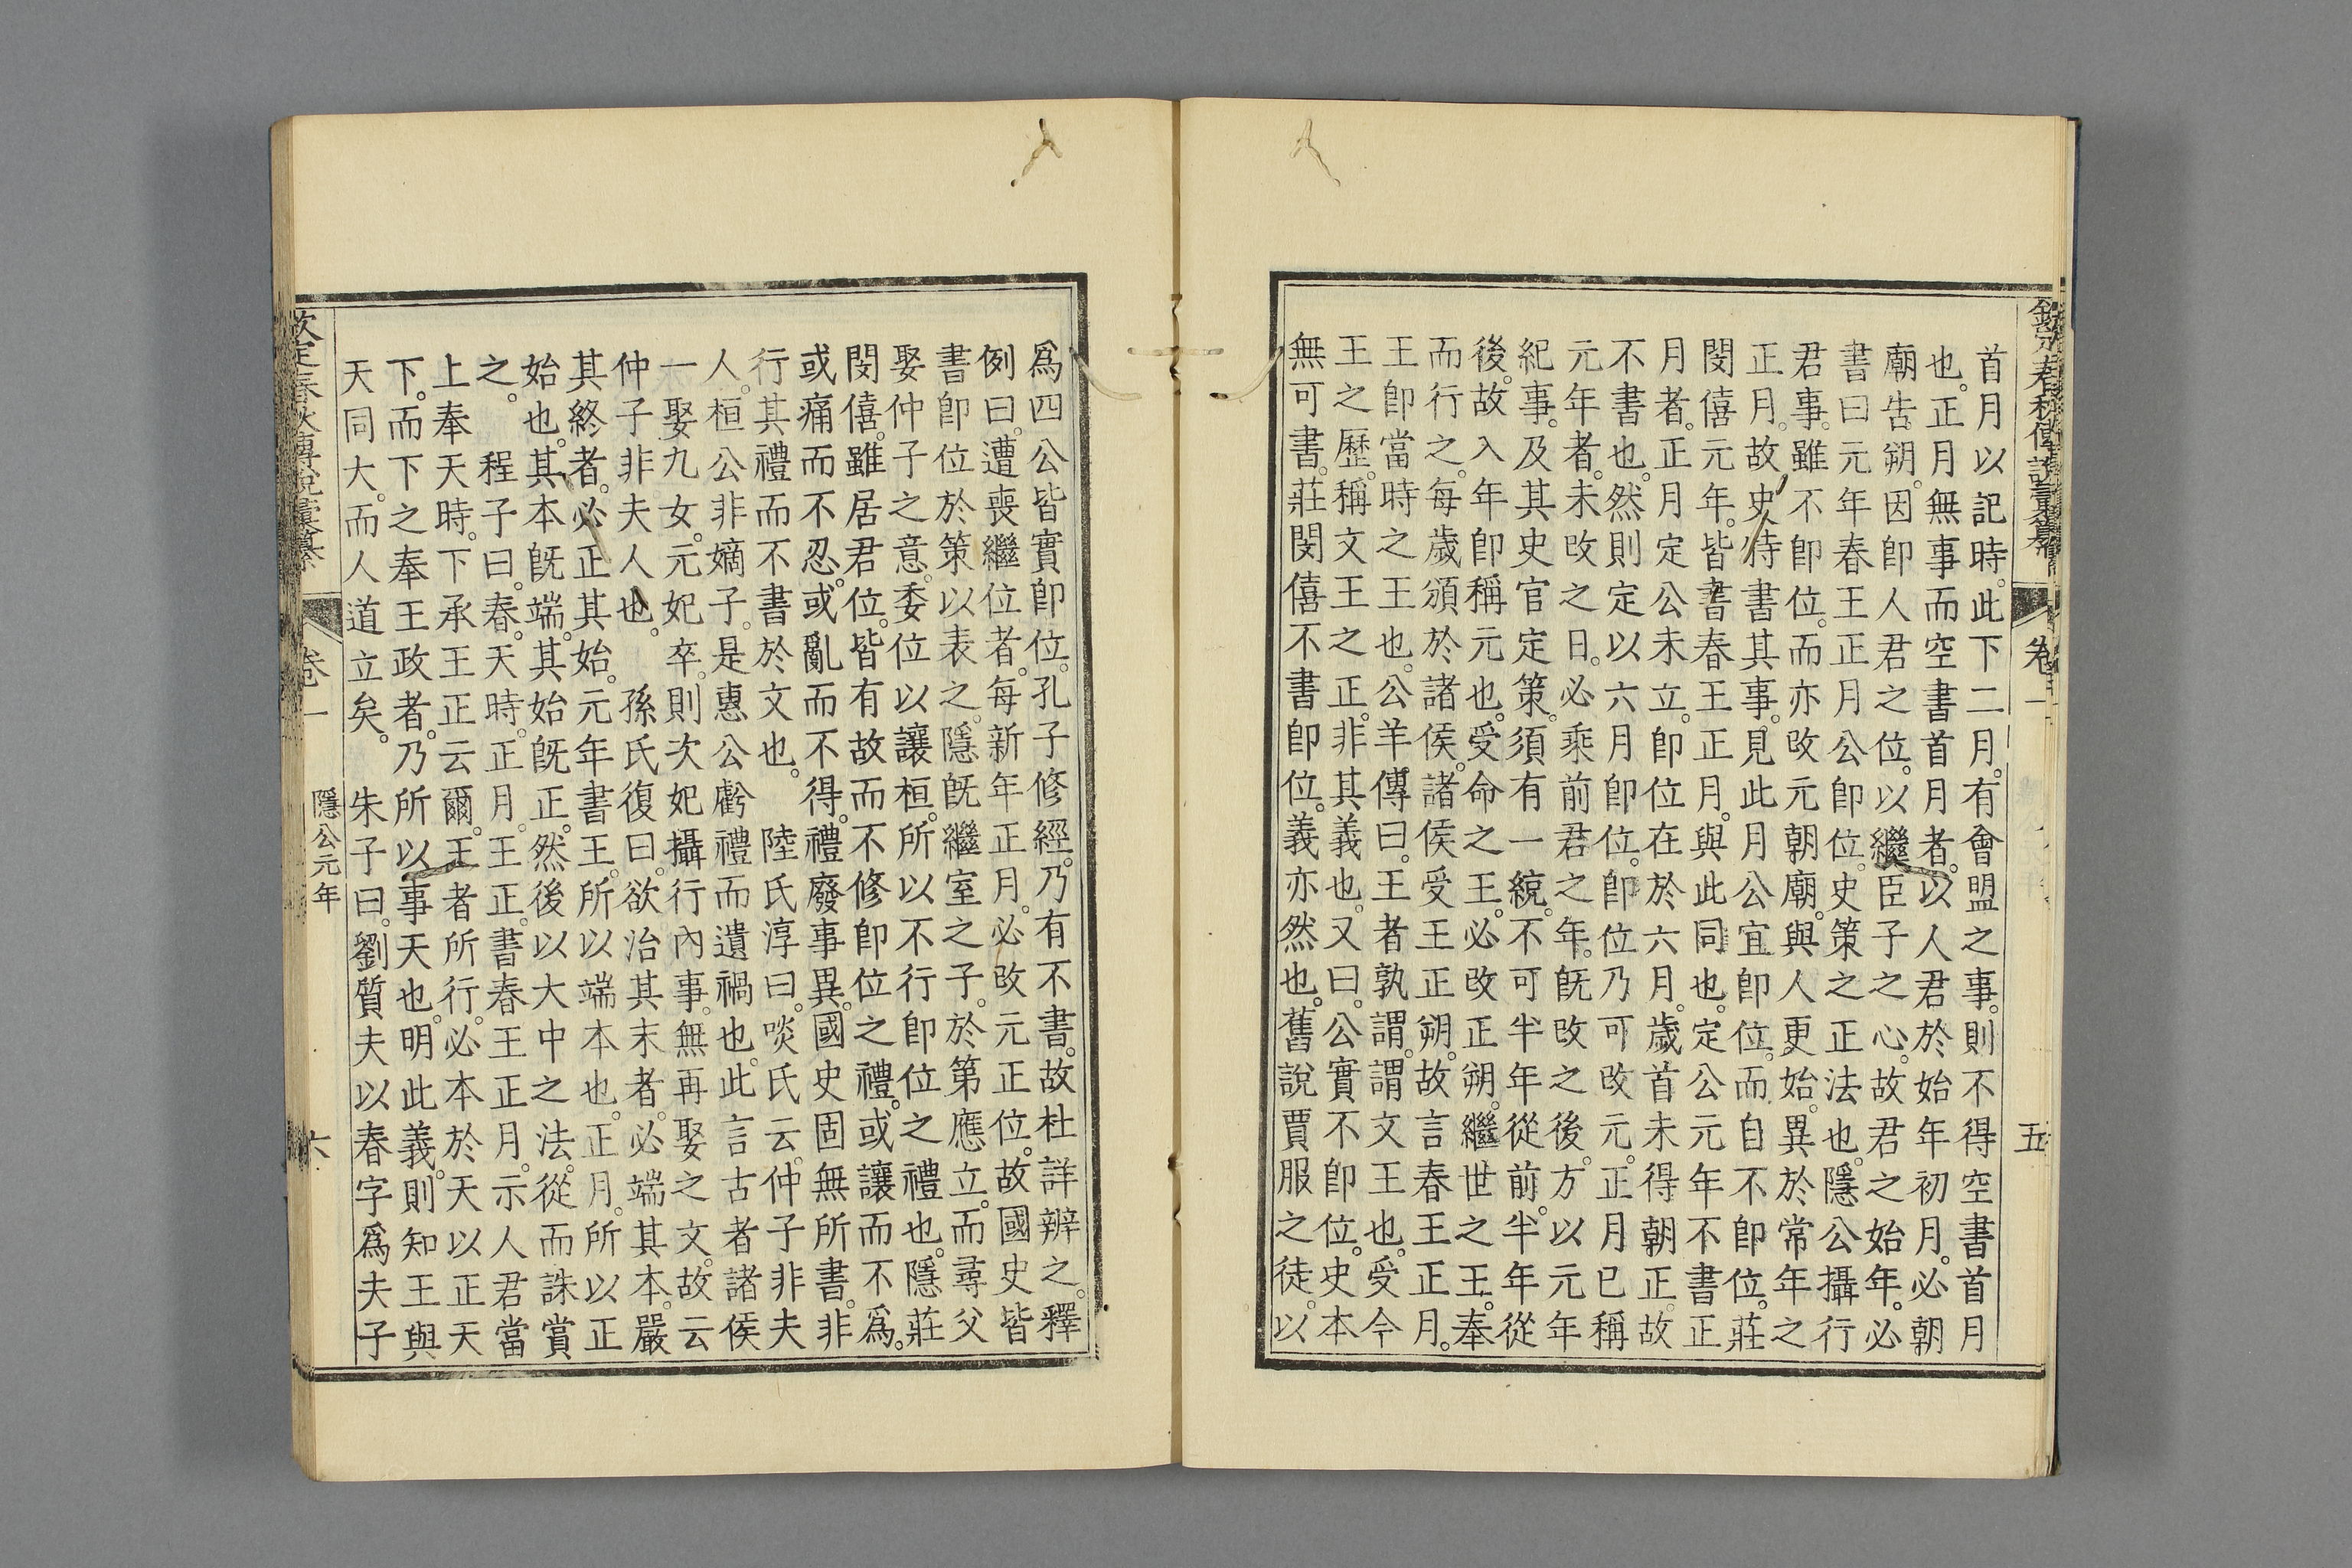 首月以記時。此下二月。有會盟之事。則不得空書首月
也。正月無事而空書首月者。以人君於始年初月。必朝
廟告朔。因卽人君之位。以繼臣子之心。故君之始年。必
書曰元年春王正月公卽位。史策之正法也。隱公攝行
君事。雖不卽位。而亦改元朝廟。與人更始。異於常年之
正月。故史特書其事。見此月公宜卽位。而自不卽位。莊
閔僖元年。皆書春王正月。與此同也。定公元年不書正
月者。正月定公未立。卽位在於六月。歲首未得朝正。故
不書也。然則定以六月卽位。卽位乃可改元。正月已稱
元年者。未改之日。必乘前君之年。旣改之後。方以元年
紀事。及其史官定策。須有一統。不可半年從前。半年從
後。故入年卽稱元也。受命之王。必改正朔。繼世之王。奉
而行之。每歲頒於諸侯。諸侯受王正朔。故言春王正月。
王卽當時之王也。公羊傳曰。王者孰謂。謂文王也。受今
王之歷。稱文王之正。非其義也。又曰。公實不卽位。史本
無可書。莊閔僖不書卽位。義亦然也。舊說賈服之徒。以
卷一
五
爲四公皆實卽位。孔子修經。乃有不書。故杜詳辨之。釋
例曰。遭喪繼位者。每新年正月。必改元正位。故國史皆
書卽位於策以表之。隱旣繼室之子。於第應立。而尋父
娶仲子之意。委位以讓桓。所以不行卽位之禮也。隱莊
閔僖。雖居君位。皆有故而不修卽位之禮。或讓而不爲。
或痛而不忍。或亂而不得。禮廢事異。國史固無所書。非
行其禮而不書於文也。　陸氏淳曰。啖氏云。仲子非夫
人。桓公非嫡子。是惠公虧禮而遺禍也。此言古者諸侯
一娶九女。元妃卒。則次妃攝行內事。無再娶之文。故云
仲子非夫人也。　孫氏復曰。欲治其末者。必端其本。嚴
其終者。必正其始。元年書王。所以端本也。正月。所以正
始也。其本旣端。其始旣正。然後以大中之法。從而誅賞
之。　程子曰。春。天時。正月。王正。書春王正月。示人君當
上奉天時。下承王正云爾。王者所行。必本於天以正天
下。而下之奉王政者。乃所以事天也。明此義。則知王與
天同大。而人道立矣。　朱子曰。劉質夫以春字爲夫子
欽定春秋傳說彙纂
卷一
隱公元年
六